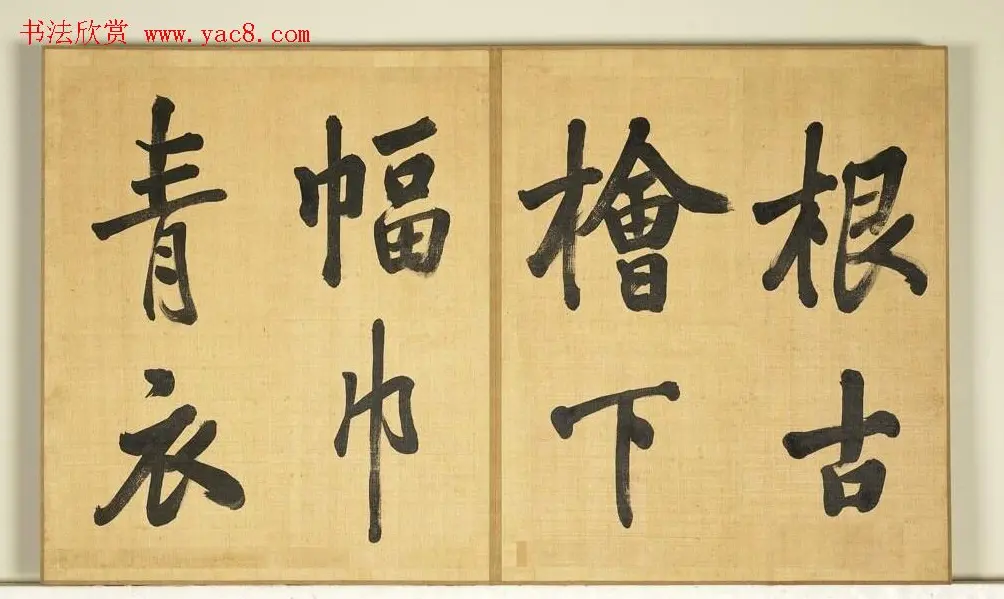 书法欣赏 www.yac8.com
根古
檜下
幅巾
青衣